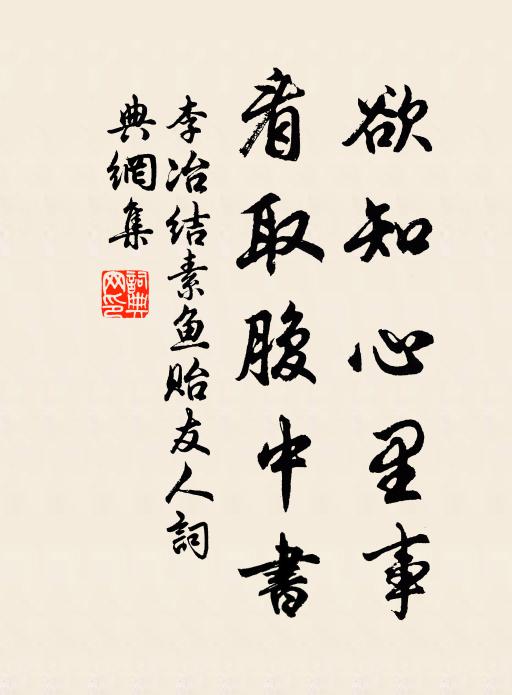 欲知心里事
看取腹中書
李冶结素魚貽友人詞
典網集
詞典
网印